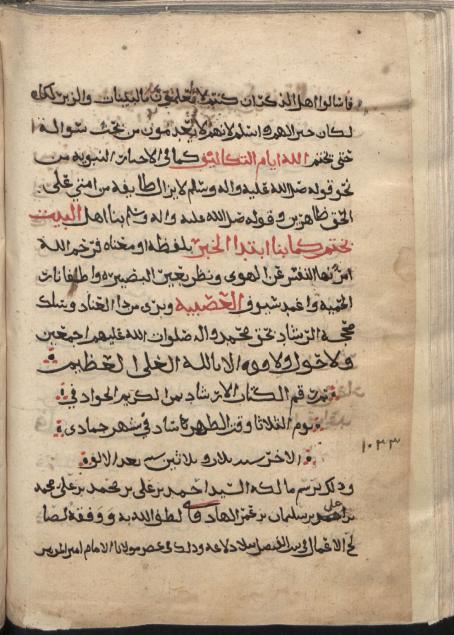 فاسالوا اهل الذكر ان كنتم لا تعلمون بالبينات والزبر لكان
لكان خيرا لهم واسلم لانهم لا يعدمون من تحت سواله
حتى يختم الله ايام التكاليف كما في الاخبار النبويه من
نحو قوله صلى الله عليه واله وسلم لا يزال طايفه من امتي على
الحق ظاهرين وقوله صلى الله عليه واله وسلم بنا اهل البيت
يختم كما بنا ابتدا الخبر بلفظه او معناه فرحم الله
امرءا نها النفس عن الهوى ونظر بعين البصيره واطفا نار
الحميه واغمد سيوف العصبيه وتبرى من العناد وسلك
محجة الرشاد بحق محمد واله صلوات الله عليهم اجمعين
ولا حول ولا قوه الا بالله العلي العظيم
تم رقم الكتاب الارشاد من الكريم الجواد في
يوم الثلاثا وقت الظهر في شهر جمادى
الاخر سنه ثلاث وثلاثين سنه بعد الالف
١٠٣٣
وذلك برسم مالكه السيد احمد بن علي بن محمد بن علي محمد
بن سلمان بن الهادي لطف الله به ووفقه لصا
لح الاعمال وذلك في عصر مولانا الامام امير المومنين